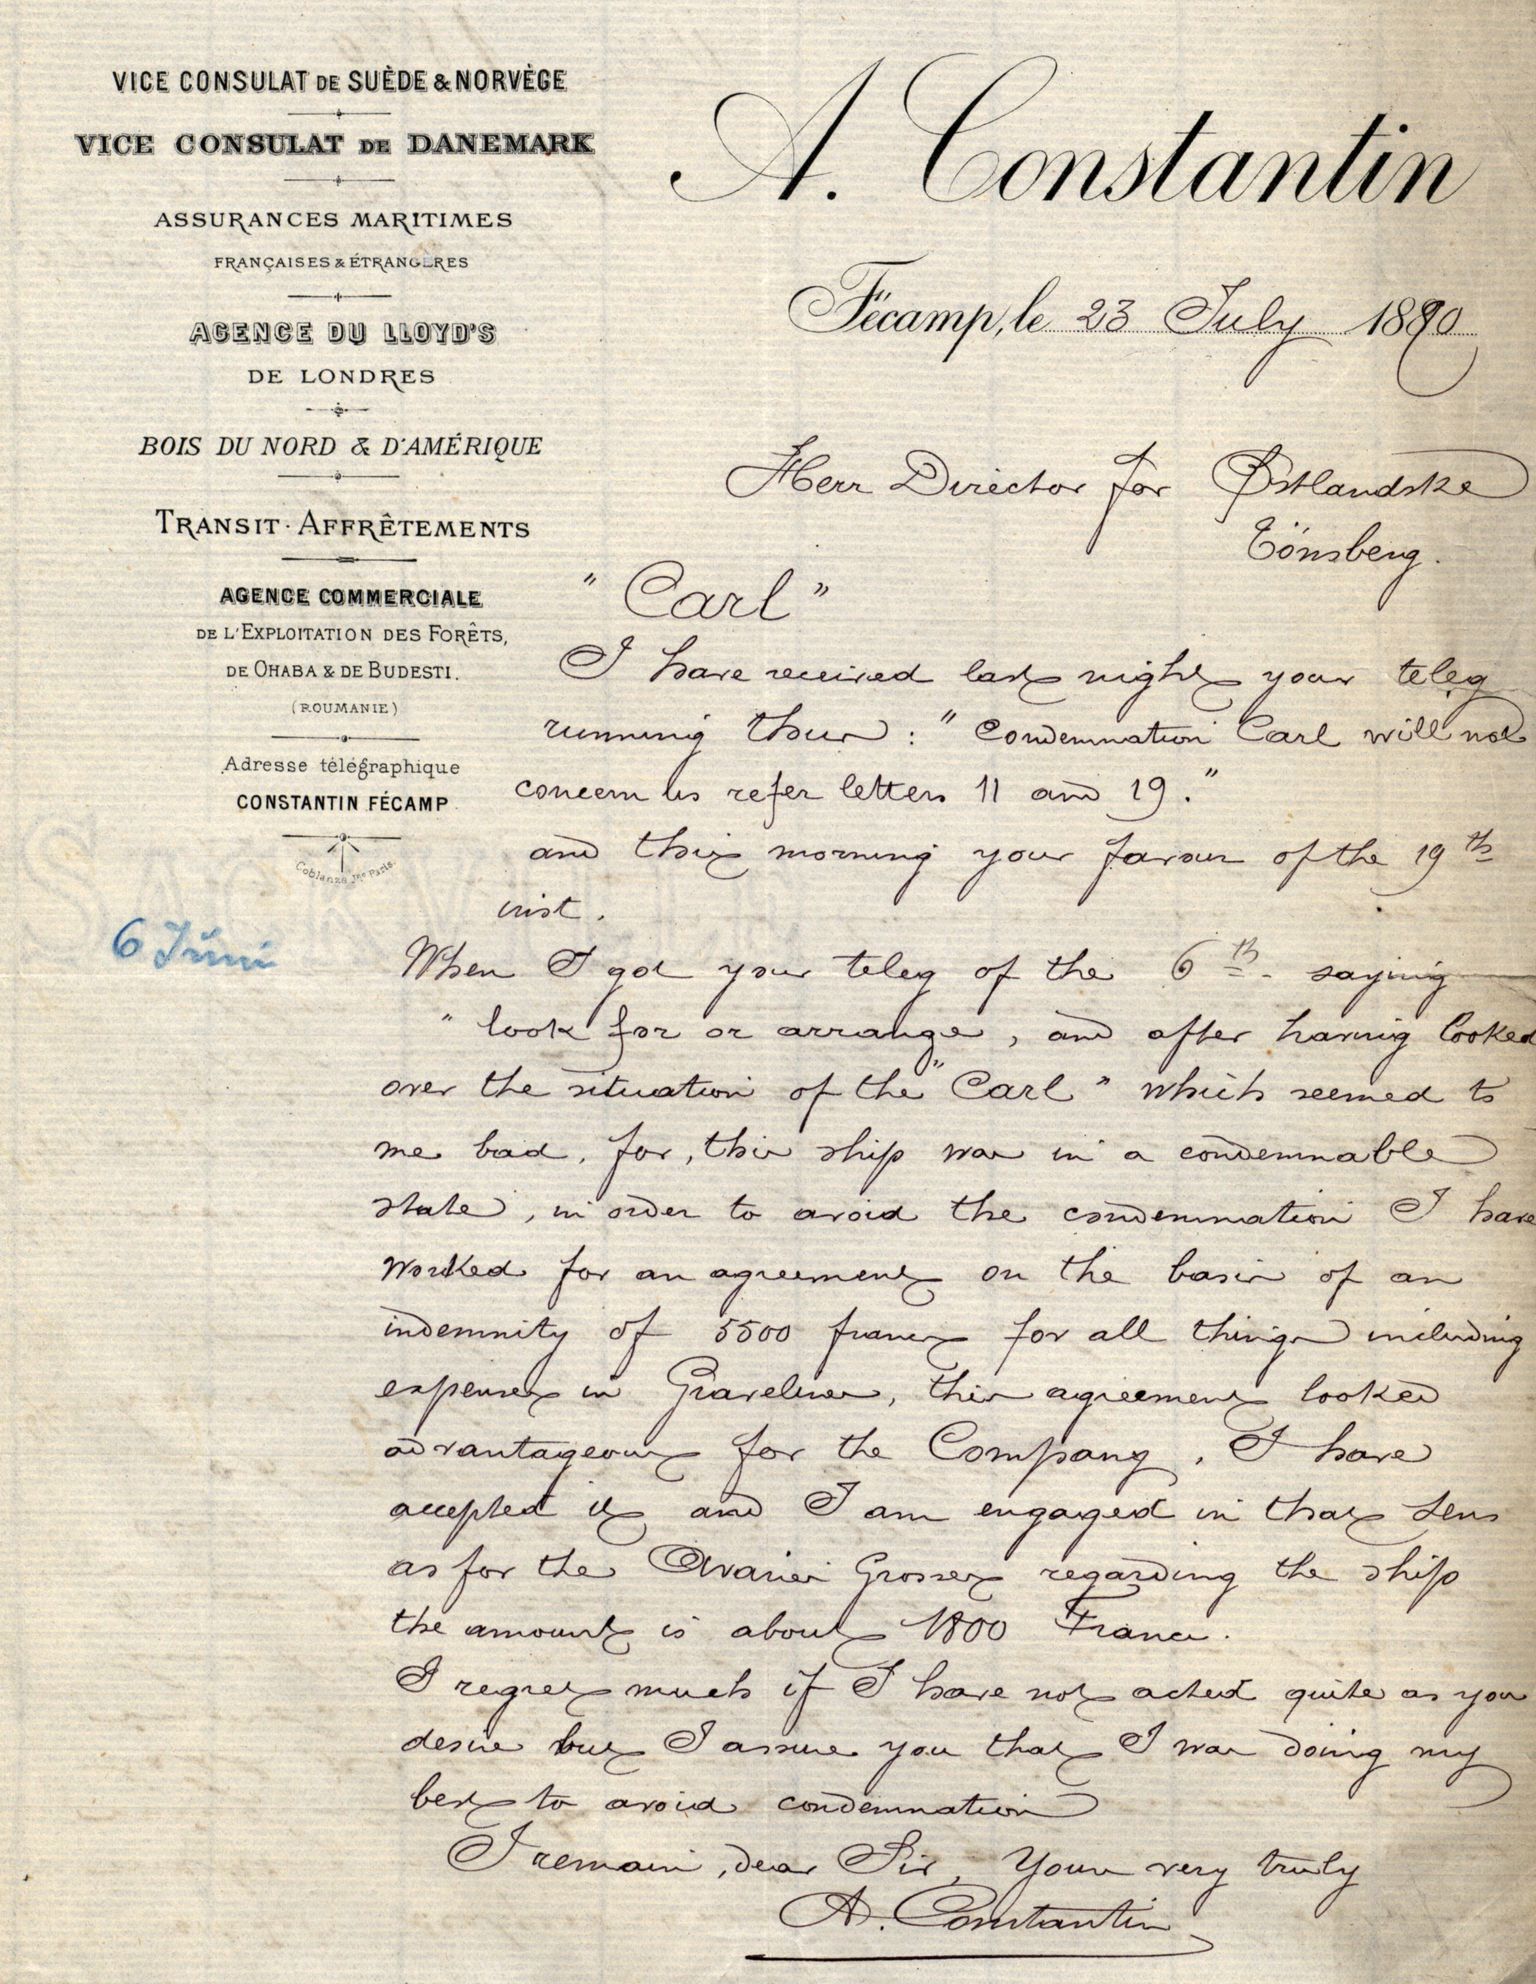 VICE CONSULAT DE SUÈDE & NORVÈGE
VICE CONSULAT DE DANEMARK
ASSURANCES MARITIMES
FRANÇAISES & ÉTRANGÈRES
AGENCE DU LLOYD'S
DE LONDRES
BOIS DU NORD & D'AMÉRIQUE
TRANSIT · AFFRÊTEMENTS
AGENCE COMMERCIALE
DE L'EXPLOITATION DES FORÊTS,
DE OHABA & DE BUDESTI.
(ROUMANIE)
Adresse télégraphique
CONSTANTIN FÉCAMP
A. Constantin
Fécamp, le 23 July 1890
Herr Director for Østlandske
Tönsberg.
"Carl"
I have received last night your teleg
running thus: "Condemnation Carl will not
concern us refer letters 11 and 19."
and this morning your favour of the 19th
inst.
6 Juni
When I got your teleg of the 6th saying
"look for or arrange, and after having looked
over the situation of the "Carl" which seemed to
me bad, for, this ship was in a condemnable
state, in order to avoid the condemnation I have
worked for an agreement on the basis of an
indemnity of 5500 francs for all things including
expenses in Gravelines, this agreement looked
advantageous for the Company, I have
accepted it and I am engaged in that sens
as for the Avaries Grosses regarding the ship
the amount is about 1800 Francs.
I regret much if I have not acted quite as you
desire but I assure you that I was doing my
best to avoid condemnation
I remain, dear Sir, Yours very truly
A. Constantin